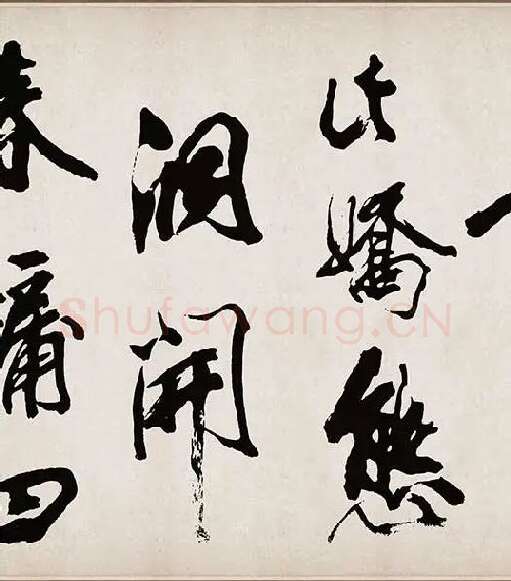 嬌態
洞開
牖四
Shufawang.CN